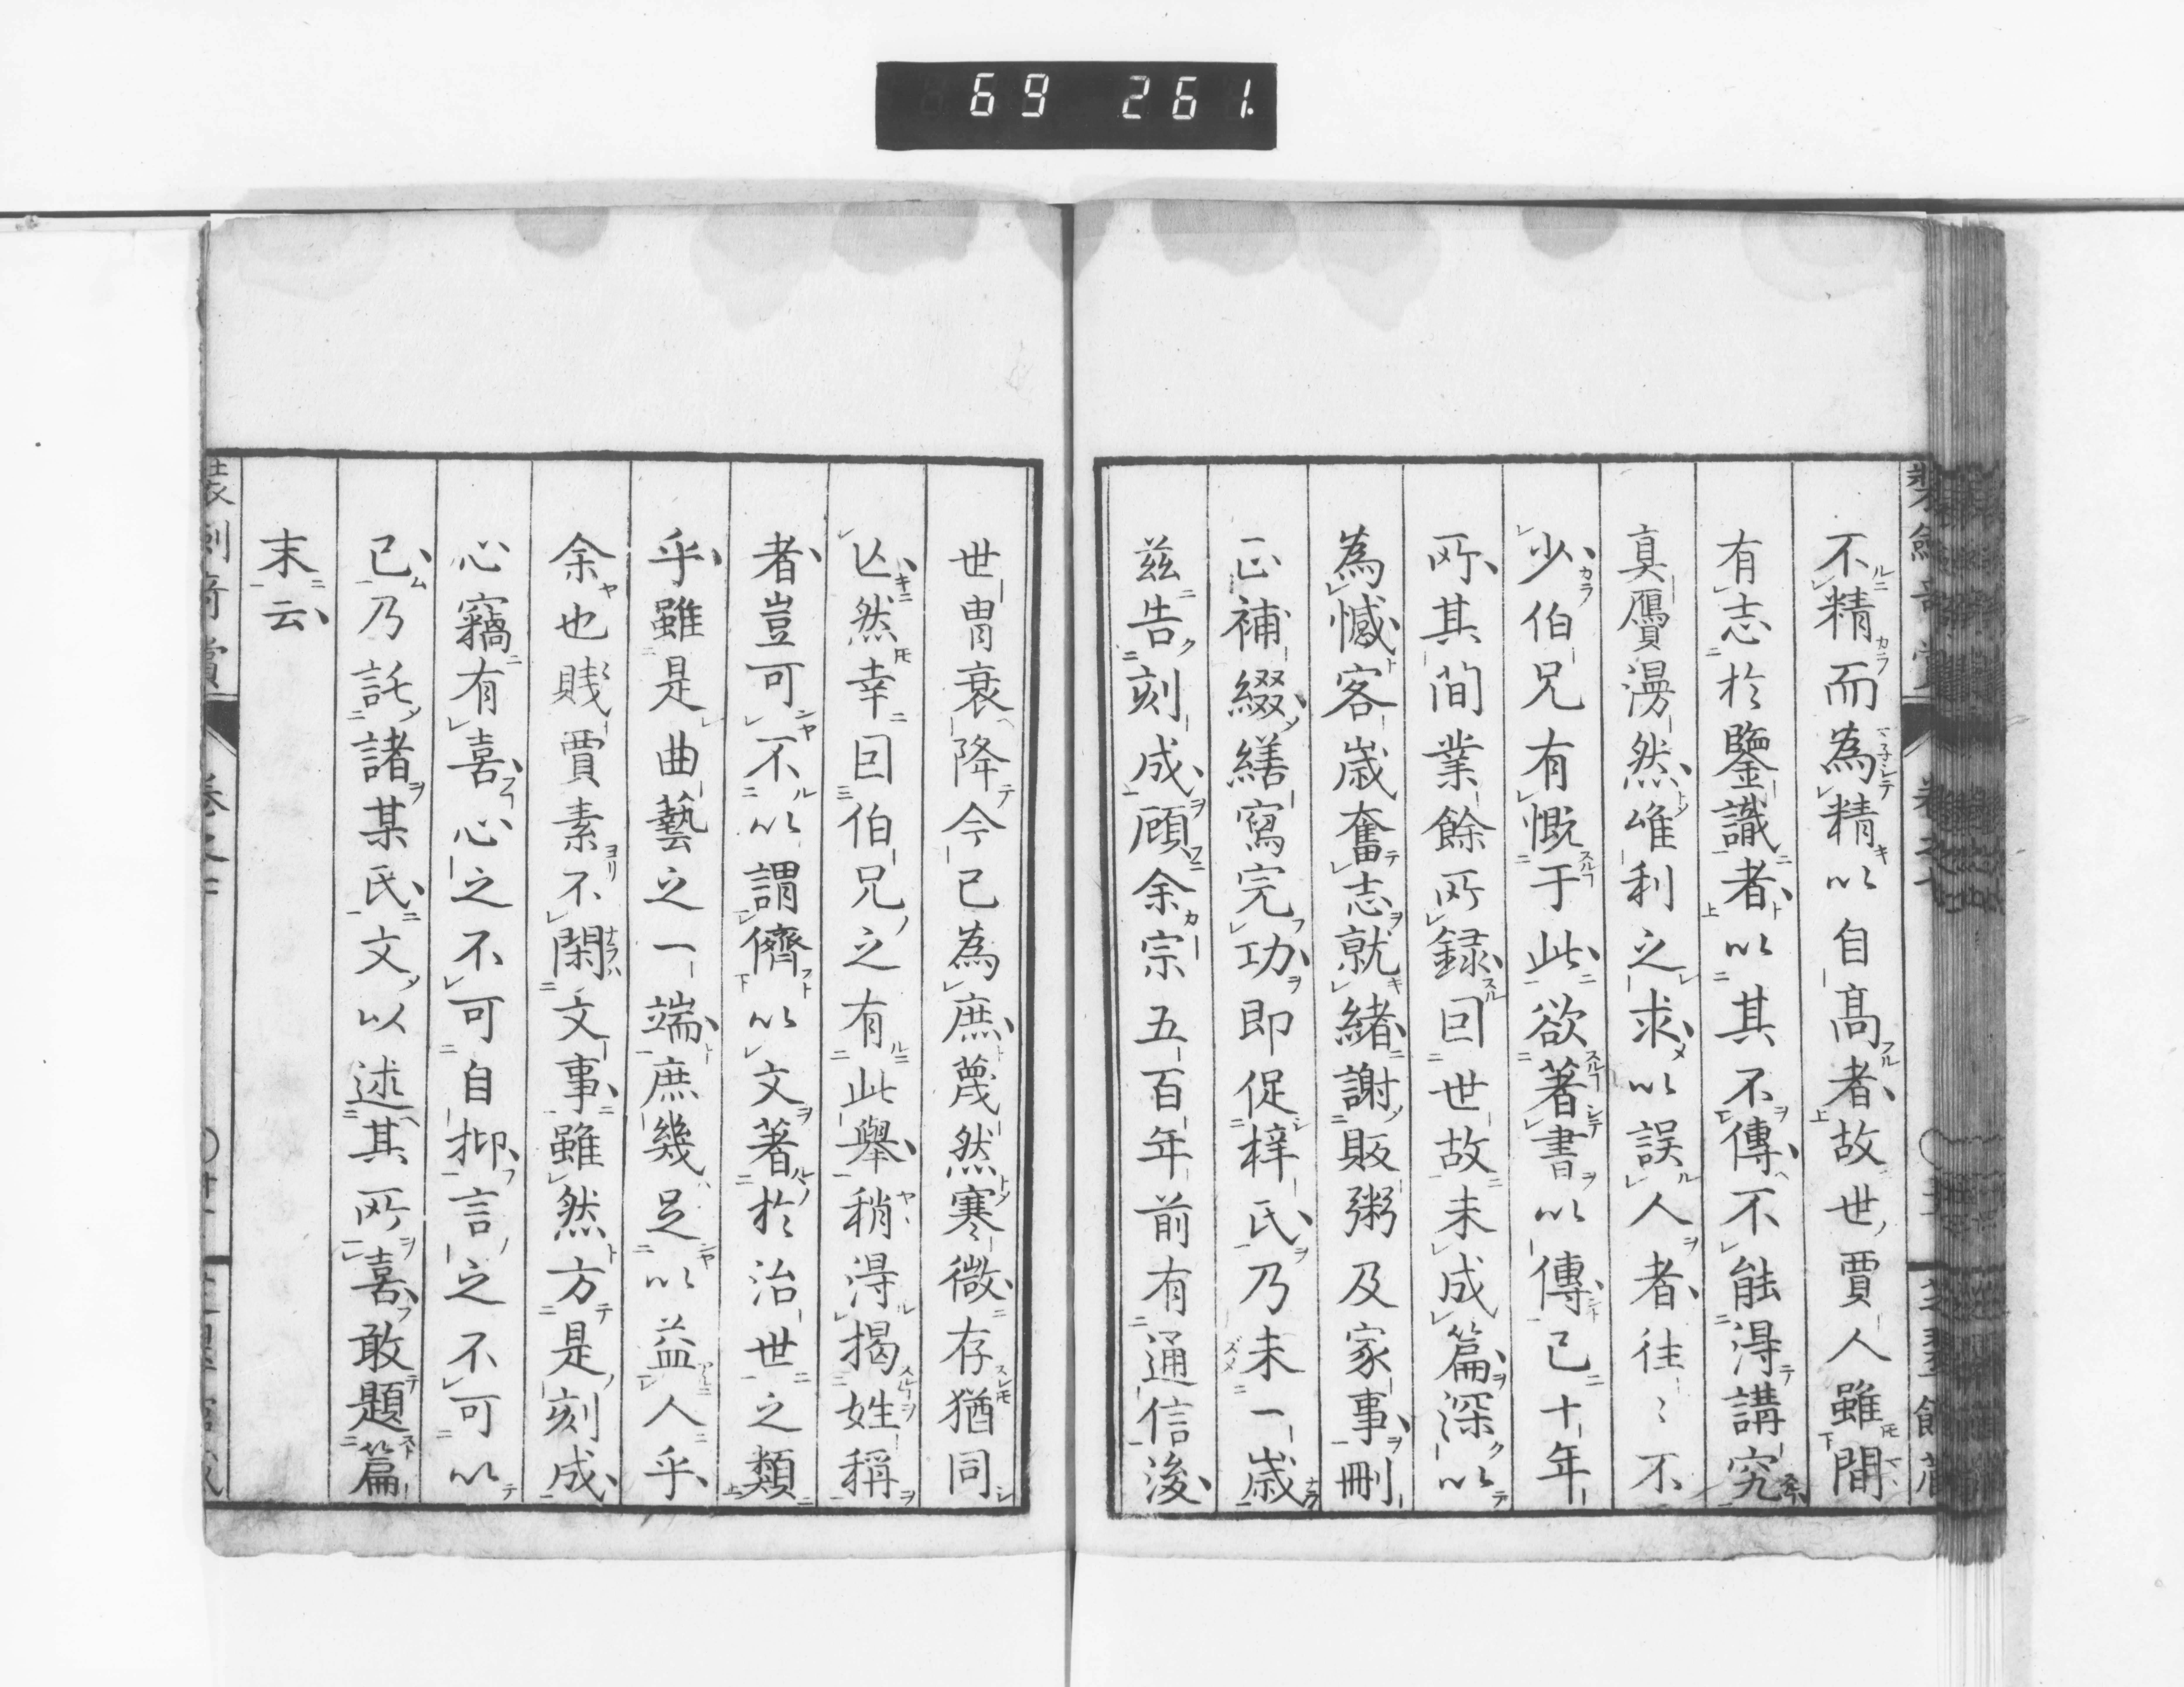 69 261
不精而為精以自高者故世賈人雖間
有志於鑒識者以其不傳不能得講究
真贋漫然唯利之求以誤人者往〻不
少伯兄有慨于此欲著書以傳已十年
所其間業餘所録回世故未成篇深以
為憾客歳奮志就緒謝販粥及家事刪
正補綴繕寫完功即促梓氏乃未一歳
茲告刻成顧余宗五百年前有通信後
世胄衰降今已為庶蔑然寒微存猶同
亡然幸因伯兄之有此舉稍得揭姓稱
者豈可不以謂儕以文著於治世之類
乎雖是曲藝之一端庶幾足以益人乎
余也賤賈素不閑文事雖然方是刻成
心竊有喜心之不可自抑言之不可以
已乃託諸某氏文以述其所喜敢題篇
末云